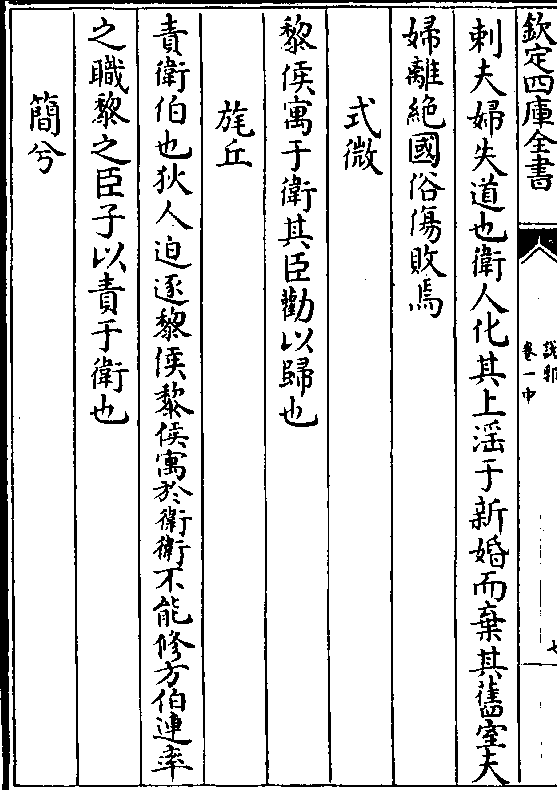 欽定四庫全書
說郛
卷一中
七
刺夫婦失道也衛人化其上滛于新婚而棄其舊室夫
婦離絶國俗傷敗焉
式微
黎侯寓于衛其臣勸以歸也
旄丘
責衛伯也狄人迫逐黎侯黎侯寓於衛衛不能修方伯連率
之職黎之臣子以責于衛也
簡兮